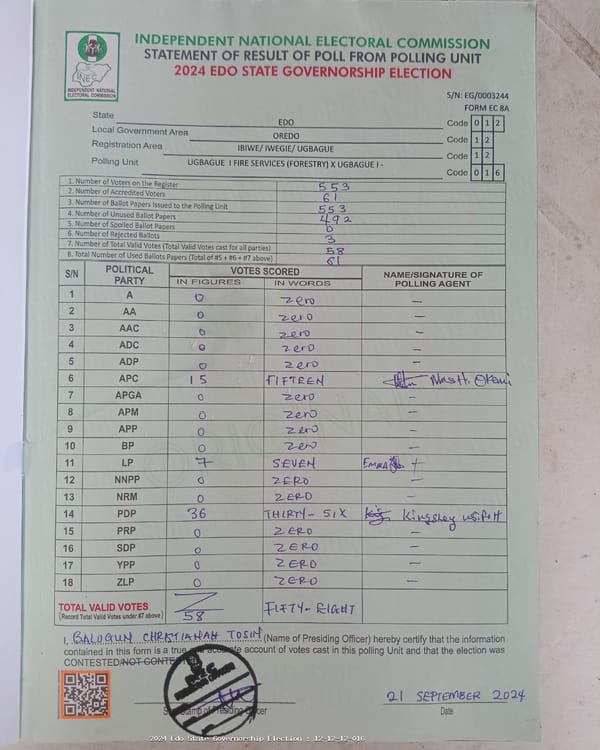 INDEPENDENT NATIONAL ELECTORAL COMMISSION
STATEMENT OF RESULT OF POLL FROM POLLING UNIT
2024 EDO STATE GOVERNORSHIP ELECTION
INEC
INDEPENDENT NATIONAL
ELECTORAL COMMISSION
S/N: EG/0003244
FORM EC 8A
State EDO Code 0 1 2
Local Government Area OREDO Code 1 2
Registration Area IBIWE/ IWEGIE/ UGBAGUE Code 1 2
Polling Unit UGBAGUE I FIRE SERVICES (FORESTRY) X UGBAGUE I - Code 0 1 6
1. Number of Voters on the Register 553
2. Number of Accredited Voters 61
3. Number of Ballot Papers Issued to the Polling Unit 553
4. Number of Unused Ballot Papers 492
5. Number of Spoiled Ballot Papers 0
6. Number of Rejected Ballots 3
7. Number of Total Valid Votes (Total Valid Votes cast for all parties) 58
8. Total Number of Used Ballots Papers (Total of #5 + #6 + #7 above) 61
S/N POLITICAL PARTY VOTES SCORED NAME/SIGNATURE OF POLLING AGENT
IN FIGURES IN WORDS
1 A 0 Zero —
2 AA 0 Zero —
3 AAC 0 Zero —
4 ADC 0 Zero —
5 ADP 0 Zero —
6 APC 15 FIFTEEN
7 APGA 0 Zero —
8 APM 0 Zero —
9 APP 0 Zero —
10 BP 0 Zero —
11 LP 7 SEVEN
12 NNPP 0 ZERO —
13 NRM 0 ZERO —
14 PDP 36 THIRTY-SIX Kingsley
15 PRP 0 ZERO —
16 SDP 0 ZERO —
17 YPP 0 ZERO —
18 ZLP 0 ZERO —
TOTAL VALID VOTES 58 FIFTY-EIGHT
(Record Total Valid Votes under #7 above)
I, BALOGUN CHRISTIANAH TOSIN (Name of Presiding Officer) hereby certify that the information
contained in this form is a true account of votes cast in this polling Unit and that the election was
CONTESTED/NOT CONTESTED
21 SEPTEMBER 2024
Date
2024 Edo State Governorship Election : 12-12-12-016